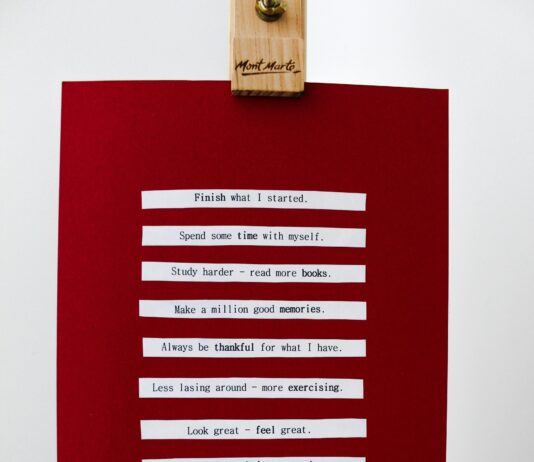 Mont Marte
Finish what I started.
Spend some time with myself.
Study harder - read more books.
Make a million good memories.
Always be thankful for what I have.
Less lasing around - more exercising.
Look great - feel great.